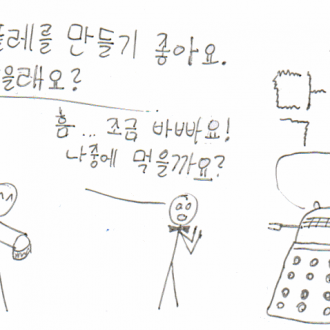 플레를 만들기 좋아요.
을래요?
흠 ... 조금 바빠요!
나중에 먹을까요?